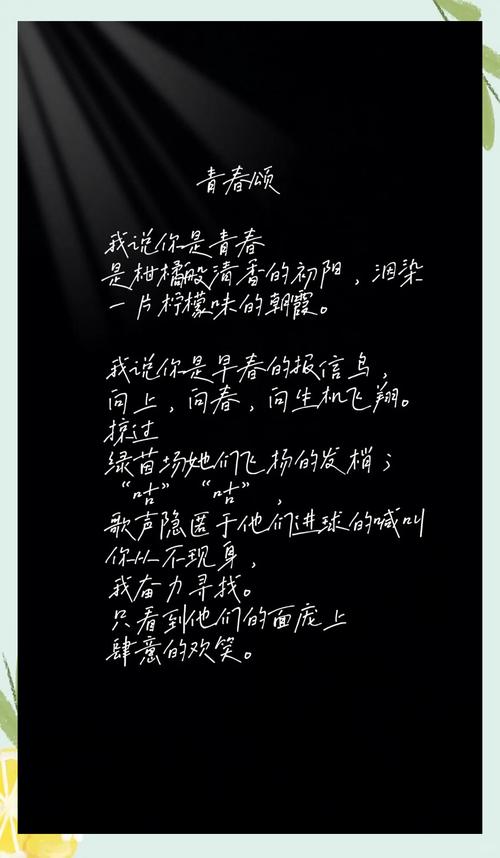 青春颂
我说你是青春
是柑橘般清香的初阳，洇染
一片柠檬味的朝霞。
我说你是早春的报信鸟，
向上，向春，向生机飞翔。
掠过
绿茵场她们飞扬的发梢；
“咕”“咕”，
歌声隐匿于他们进球的喊叫
你从不现身，
我奋力寻找。
只看到他们的面庞上
肆意的欢笑。